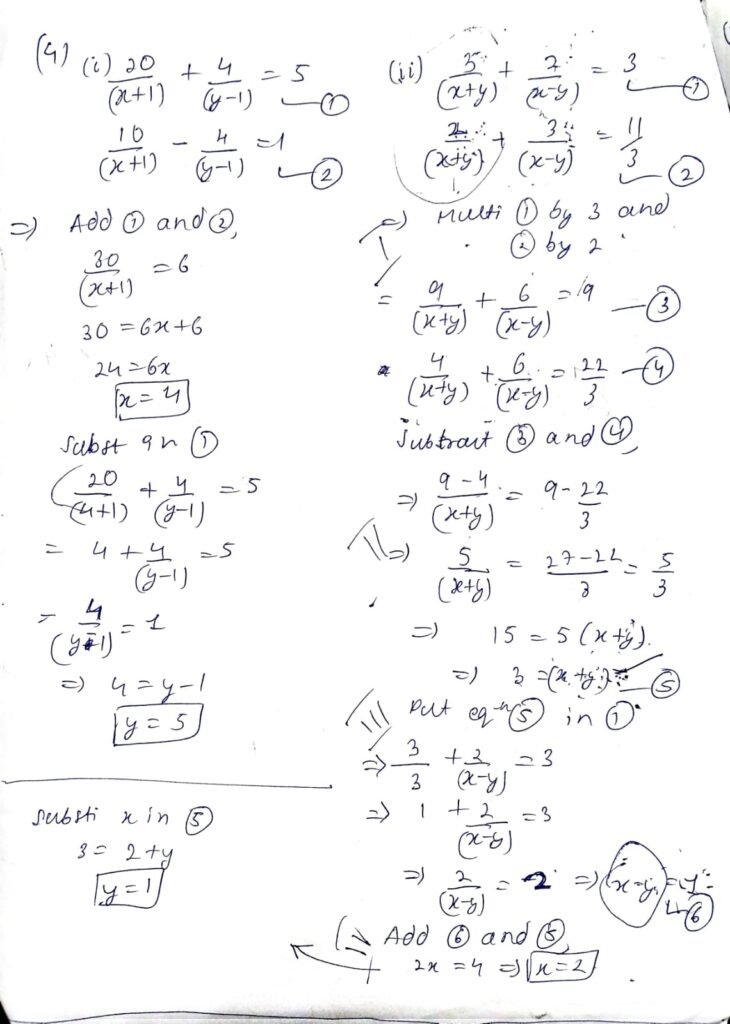 (4) (i) 20/(x+1) + 4/(y-1) = 5 ①
10/(x+1) - 4/(y-1) = 1 ②
=> Add ① and ②,
30/(x+1) = 6
30 = 6x+6
24 = 6x
x = 4
Subst 4 in ①
20/(4+1) + 4/(y-1) = 5
= 4 + 4/(y-1) = 5
= 4/(y-1) = 1
=> 4 = y-1
y = 5
(ii) 3/(x+y) + 2/(x-y) = 3 ①
2/(x+y) + 3/(x-y) = 11/3 ②
=> Multi ① by 3 and
② by 2
= 9/(x+y) + 6/(x-y) = 9 — ③
4/(x+y) + 6/(x-y) = 22/3 — ④
Subtract ③ and ④,
=> 9-4/(x+y) = 9 - 22/3
=> 5/(x+y) = 27-22/3 = 5/3
=> 15 = 5(x+y)
=> 3 = (x+y) ⑤
Put eqn ⑤ in ①
=> 3/3 + 2/(x-y) = 3
=> 1 + 2/(x-y) = 3
=> 2/(x-y) = 2 => (x-y) = 1 ⑥
Add ⑥ and ⑤,
2x = 4 => x = 2
Substi x in ⑤
3 = 2+y
y = 1